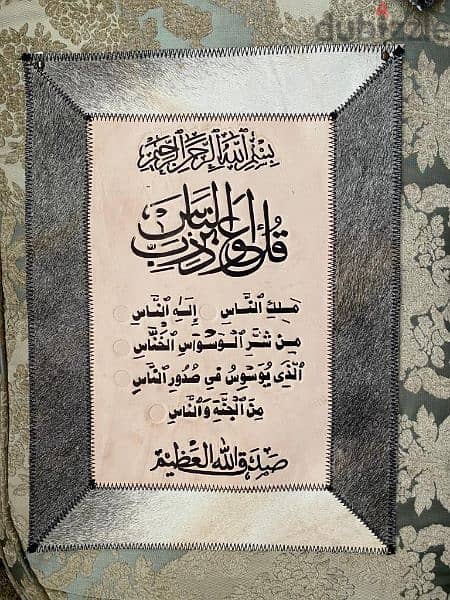 dubizzle
بِسْمِ اللهِ الرَّحْمٰنِ الرَّحِيمِ
قُلْ أَعُوذُ بِرَبِّ النَّاسِ
مَلِكِ النَّاسِ إِلٰهِ النَّاسِ
مِن شَرِّ الْوَسْوَاسِ الْخَنَّاسِ
الَّذِى يُوَسْوِسُ فِى صُدُورِ النَّاسِ
مِنَ الْجِنَّةِ وَالنَّاسِ
صَدَقَ اللهُ الْعَظِيمُ